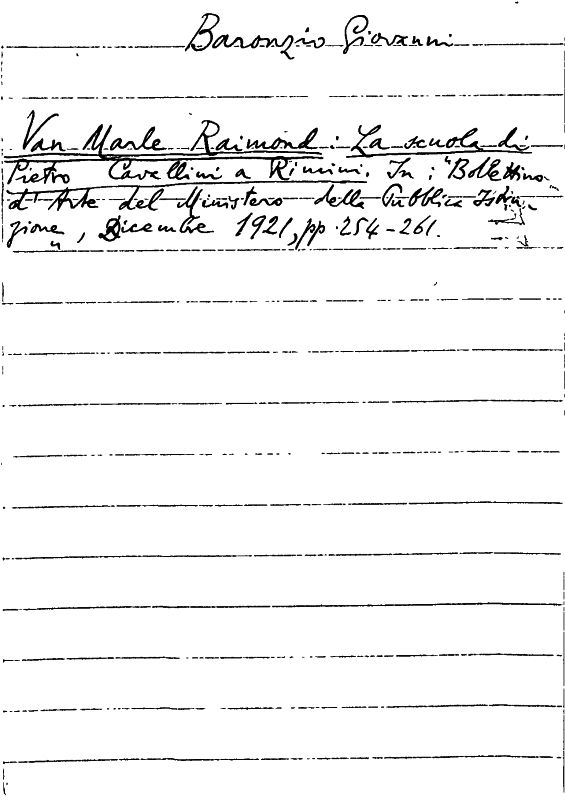 Baronzio Giovanni
Van Marle Raimond: La scuola di
Pietro Cavallini a Rimini. In: "Bollettino
d'Arte del Ministero della Pubblica Istru-
zione", Dicembre 1921, pp. 254-261.